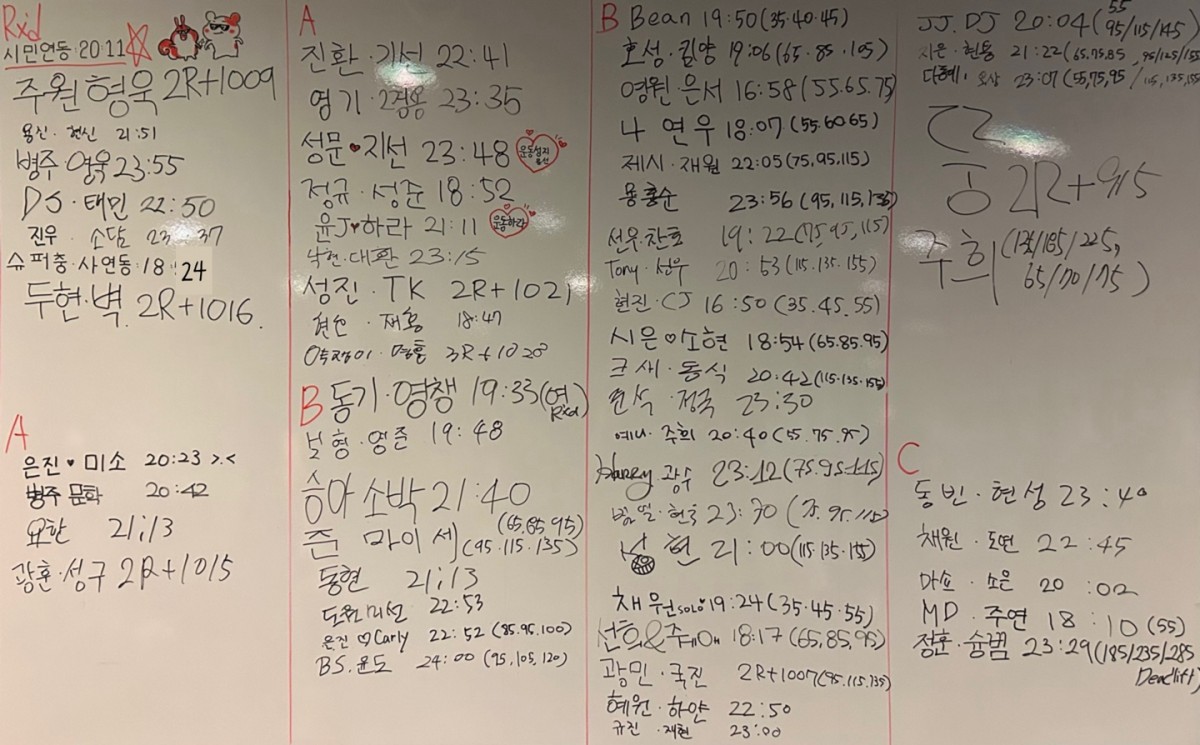 Rxd
시민연동·20:11
주원형욱 2R+1009
용신·현신 21:51
병주 영욱 23:55
DJ·태민 22:50
진우·소담 23:37
슈퍼충·사연동·18:24
두현·벽 2R+1016
A
은진♥미소 20:23 >.<
병주 문학 20:42
요한 21:13
광훈·성구 2R+1015
A
진환·기선 22:41
영기·2경용 23:35
성문♥지선 23:48
정규·성준 18:52
윤J♥하라 21:11
운동하라
낙현·대환 23:15
성진·TK 2R+1021
18:47
3R+1028
B
동기·영챙 19:33(여 Rxd)
보형·영준 19:48
승아 소박 21:40
(65.85.95)
쥰 마이세 (95.115.135)
동현 21:13
도원미선 22:53
은진♡Carly 22:52 (85.95.100)
BS.윤도 24:00 (95,105,120)
B
Bean 19:50(35.40.45)
호성·킴양 19:06(65.85.105)
영원·은서 16:58(55.65.75)
나 연우 18:07(55.60.65)
제시·재원 22:05(75,95,115)
용홍순 23:56(95,115,135)
선웃·찬호 19:22(75,95,115)
Tony·선우 20:53(115.135.155)
현진·CJ 16:50(35.45.55)
시은♡소현 18:54(65.85.95)
크새·동식 20:42(115.135.155)
정국 23:30
예나·주희 20:40(55.75.95)
Harry 광수 23:12(75.95.115)
23:30 (75.95.115)
현 21:00(115.135.155)
채원 solo 19:24(35.45.55)
18:17(65,85,95)
광민·국진 2R+1007(95.115.135)
혜원·하얀 22:50
규진·재현 23:00
JJ.DJ 20:04(55 95/115/145)
지은·현용 21:22(65.75.85, 95/125/155)
다혜 23:07(55,75,95/115,135,155)
종 2R+915
주희(135/185/225, 65/70/75)
C
동빈·현성 23:40
채원·도연 22:45
마쇼·소은 20:02
MD·주연 18:10(55)
정훈·슝범 23:29(185/235/285
Deadlift)